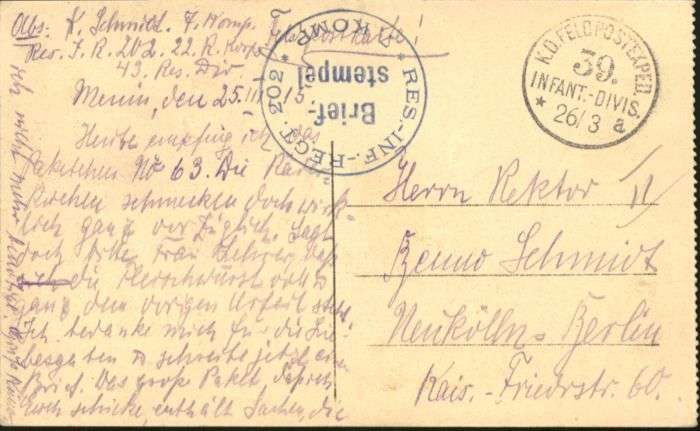 Abs. K. Schmidt. 7. Komp.
Res. J. R. 202. 22. R. Korps
43. Res. Div.
Feldpostkarte!
Menin, den 25. III. 15.
Heute empfing ich das
Paketchen No 63. Die
Kuchen schmecken doch wirk-
lich ganz vorzüglich. Sagt
doch bitte Frau
die Fleischwurst
ganz den vorigen
Ich bedanke mich für die Lie-
besgaben u. schreibe jetzt einen
Brief. Das große Paket, das ich
schicke, enthält Sachen, die
ich nicht mehr
RES.-INF.-REGT. 202 * 7. KOMP. *
Brief-
stempel
K.D. FELDPOSTEXPED.
39.
INFANT.-DIVIS.
* 26/3 a
Herrn Rektor
Benno Schmidt
Neukölln-Berlin
Kais.-Friedrstr. 60.